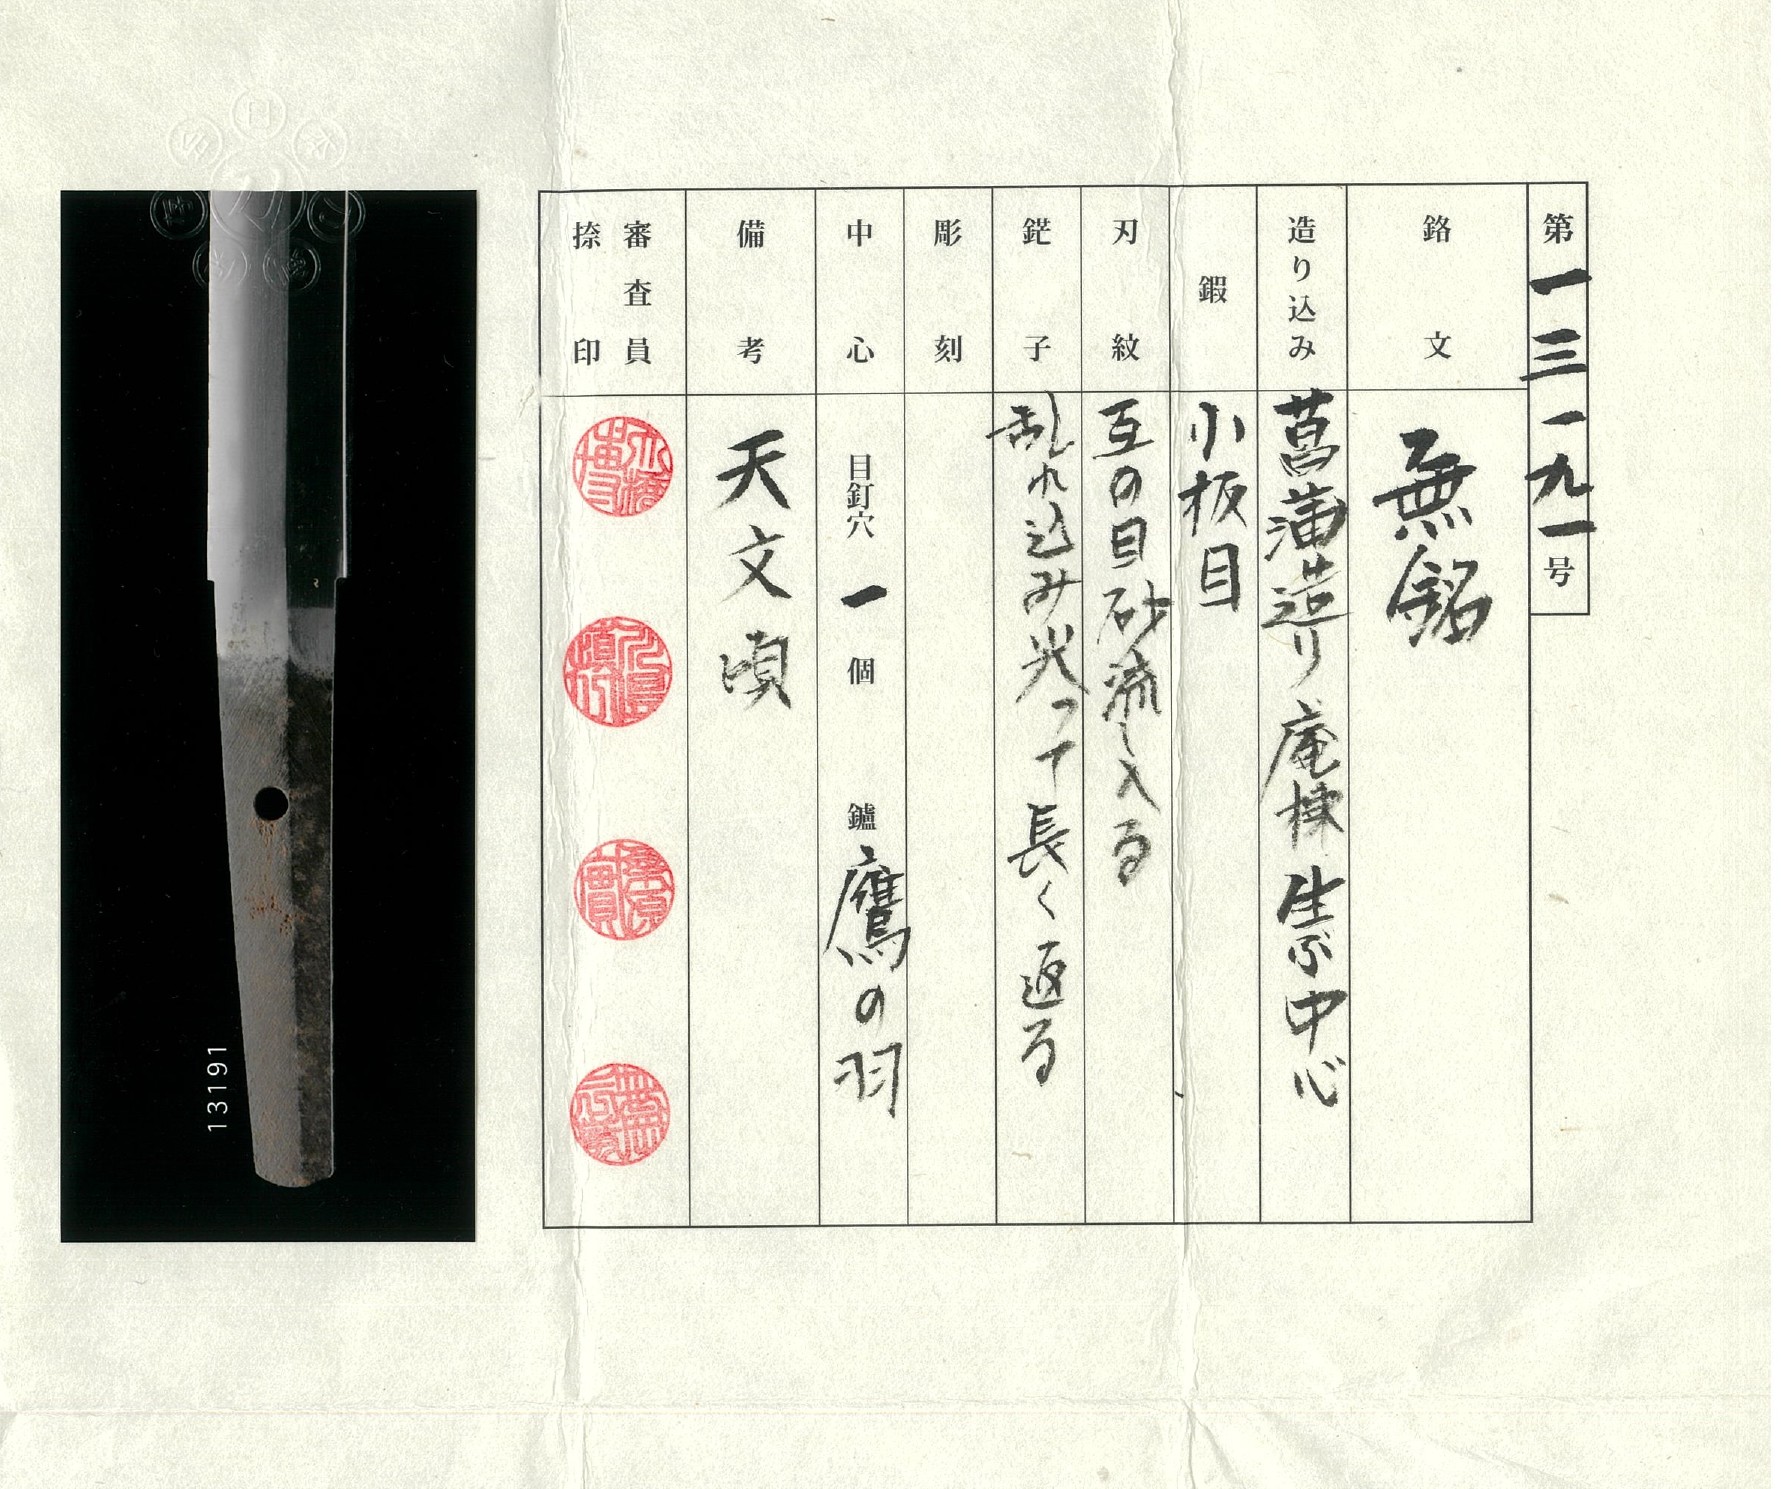 第一三一九一号
銘文
無銘
造り込み
菖蒲造り 庵棟 生ぶ中心
鍜
小板目
刃紋
互の目砂流し入る
鋩子
乱れ込み尖って長く返る
彫刻
中心
目釘穴 一 個 鑢 鷹の羽
備考
天文頃
審査員
捺印
13191